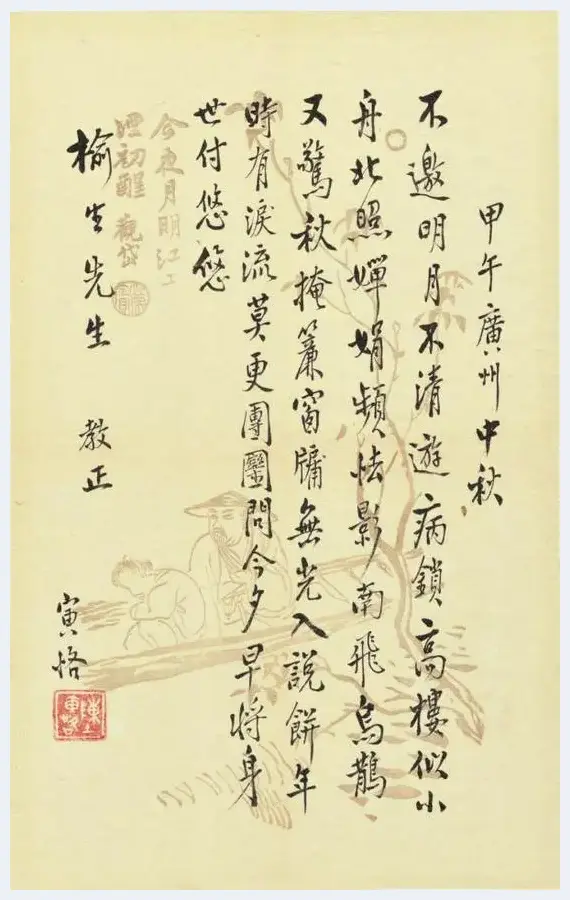 甲午廣州中秋
不邀明月不清遊病鎖高樓似小
舟北照嬋娟頻怯影南飛烏鵲
又驚秋掩簾窗牖無光入說餅年
時有淚流莫更團圞問今夕早將身
世付悠悠
今夜月明江上
酒初醒 觀岱
榆生先生 教正
寅恪
陳寅恪